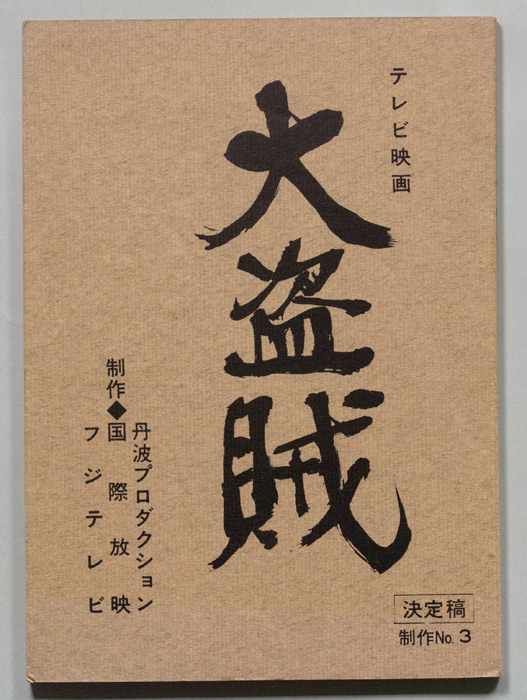 テレビ映画
大盗賊
制作◆
丹波プロダクション
国際放映
フジテレビ
決定稿
制作No. 3